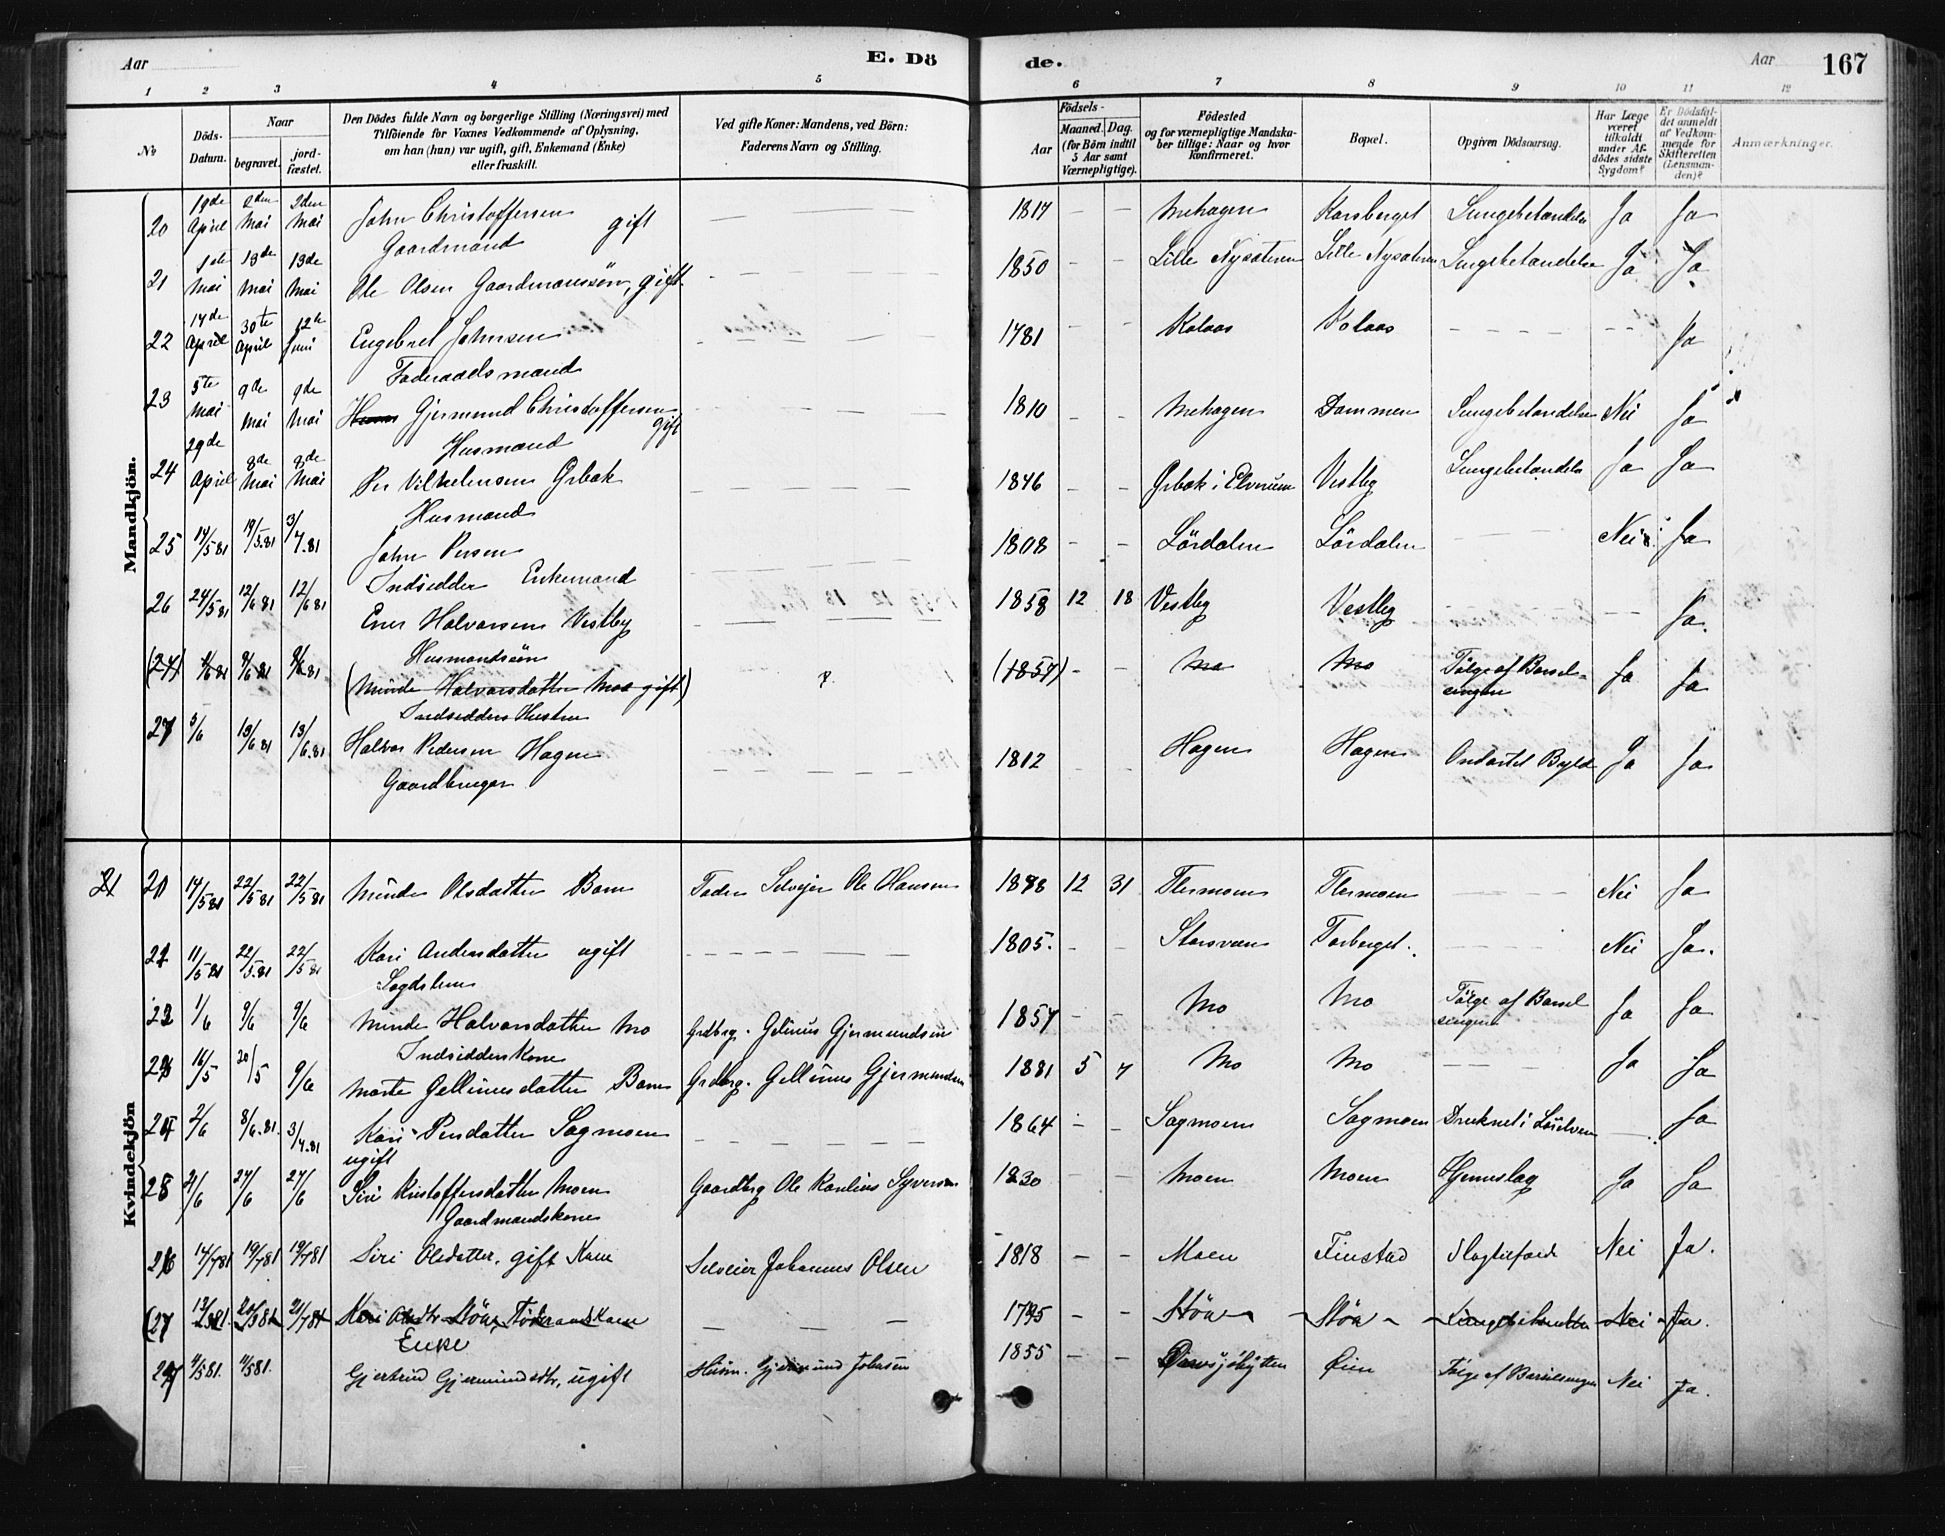 Aar
E. Dö
de.
Aar
167
1 2 3 4 5 6 7 8 9 10 11 12
No
Döds-
Datum.
Naar
begravet.
jord-
fæstet.
Den Dödes fulde Navn og borgerlige Stilling (Næringsvei) med
Tilföiende for Voxnes Vedkommende af Oplysning,
om han (hun) var ugift, gift, Enkemand (Enke)
eller fraskilt.
Ved gifte Koner: Mandens, ved Börn:
Faderens Navn og Stilling.
Födsels-
Aar
Maaned. Dag.
(for Börn indtil
5 Aar samt
Værnepligtige).
Födested
og for værnepligtige Mandska-
ber tillige: Naar og hvor
konfirmeret.
Bopæl.
Opgiven Dödsaarsag.
Har Læge
været
tilkaldt
under Af-
dödes sidste
Sygdom?
Er Dödsfal-
det anmeldt
af Vedkom-
mende for
Skifteretten
(Lensman-
den)?
Anmærkninger.
Mandkjön.
20 19de April 2den Mai 2den Mai John Christoffersen gift 1817 – – Mehagen Karsberget Lungebetændelse Ja Ja
Gaardmand
21 1ste Mai 13de Mai 13de Mai Ole Olsen Gaardmandssøn, gift 1850 – – Lille Nysæteren Lille Nysæteren Lungebetændelse Ja Ja
22 17de April 30te April 12te Juni Engebret Johnsen 1781 – – Kolaas Kolaas – – Ja
Føderaadsmand
23 5te Mai 9de Mai 9de Mai Gjermund Christoffersen gift 1810 – – Mehagen Dammen Lungebetændelse Nei Ja
Husmand
24 29de April 8de Mai 8de Mai Per Vilhelmsen Grbak 1846 – – Grbak i Elverum Vestby Lungebetændelse Ja Ja
Husmand
25 14/5 81 19/5.81 3/7.81 John Persen 1808 – – Lördalen Lördalen – Nei Ja
Indsidder Enkemand
26 24/5 81 12/6 81 12/6 81 Ener Halvorsen Vestby 1858 12 18 Vestby Vestby – – Ja.
Husmandssøn
(27) 1/6 81 9/6 81 9/6 81 (Minde Halvorsdatter Moe gift) (1857) – – Mo Mo Følge af Barsel-
sengen Ja Ja
Indsidders Hustru
27 5/6 13/6 81 13/6.81 Halvor Pedersen Hagen 1812 – – Hagen Hagen Ondartet Byld Ja Ja
Gaardbruger
Kvindekjön
21 20 14/5 81 22/5 81 22/5 81 Minde Olsdatter Barn Fader Selveier Ole Hansen 1878 12 31 Flermoen Flermoen – Nei Ja
21 11/5 81 22/5.81 22/5 81 Kari Andersdatter ugift 1805. – – Storsveen Torberget. – Nei Ja.
Lægdslem
22 1/6 9/6 9/6 Minde Halvorsdatter Mo Grdbrg. Gelinius Gjermundsen 1857 – – Mo Mo Følge af Barsel
sengen Ja Ja
Indsidders Kone
23 16/5 20/5 9/6 Marte Gelliniusdatter Barn Grdbrg. Gellinius Gjermundsen 1881 5 7 Mo Mo – Ja Ja
24 2/6 8/6.81. 3/7.81 Kari Persdatter Sagmoen 1864 – – Sagmoen Sagmoen Druknet i Lörelven – Ja
ugift
25 21/6 27/6 27/6 Siri Kristoffersdatter Moen Gaardbrg Ole Karelius Syversen 1830 – – Moen Moen Hjerneslag Ja Ja
Gaardmandskone
26 14/7 81 19/7 81 19/7 81 Siri Olsdatter, gift Kone Selveier Johannes Olsen 1818 – – Moen Finstad Slagtilfælde Nei Ja.
(27 21/7 81 Kari Olsdtr Støa, Føderaadskone 1795 – – Støa Støa Lungebetændelse Nei Ja.
Enke
27 4/5 81. 11/5 81. Gjertrud Gjermundsdtr, ugift Husm. Gjermund Johnsen 1855 – – Øiersjøhytten Øien Følge af Barselsengen Nei Ja.